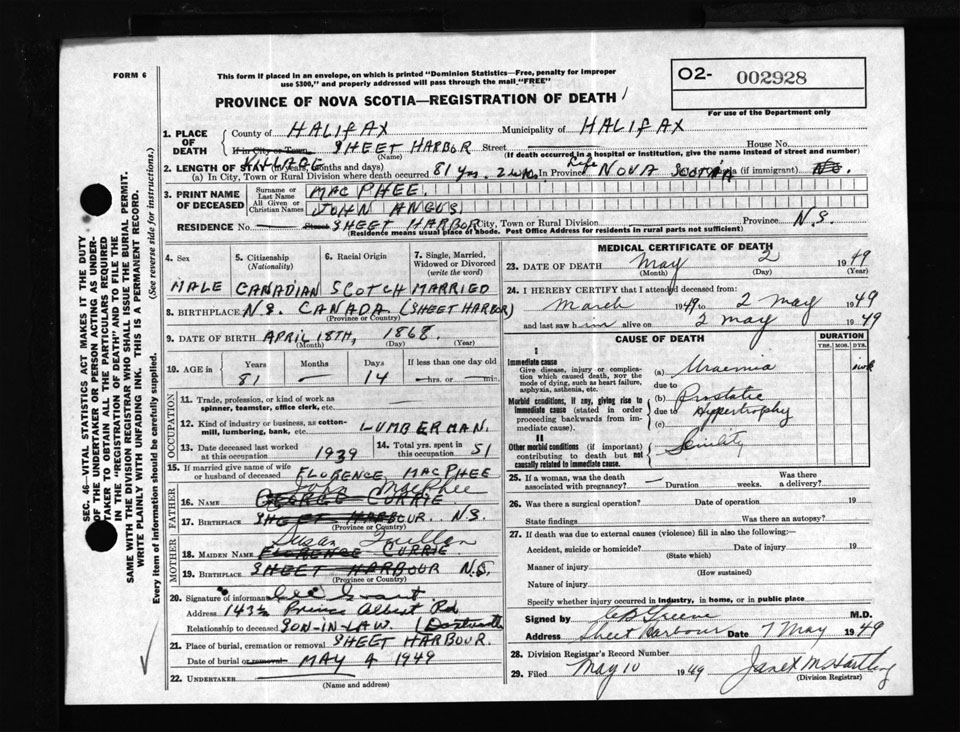 FORM 6
This form if placed in an envelope, on which is printed "Dominion Statistics—Free, penalty for improper
use $300," and properly addressed will pass through the mail "FREE"
O2- 002928
For use of the Department only
PROVINCE OF NOVA SCOTIA—REGISTRATION OF DEATH
1. PLACE OF DEATH County of HALIFAX Municipality of HALIFAX
If in City or Town SHEET HARBOR Street House No.
(Name) (If death occurred in a hospital or institution, give the name instead of street and number)
2. LENGTH OF STAY (in years, months and days) VILLAGE
(a) In City, Town or Rural Division where death occurred 81 yrs. 2 wks. In Province Life NOVA SCOTIA (if immigrant) NS.
3. PRINT NAME OF DECEASED
Surname or Last Name MACPHEE
All Given or Christian Names JOHN ANGUS
RESIDENCE No. — Street SHEET HARBOR City, Town or Rural Division Province N.S.
(Residence means usual place of abode. Post Office Address for residents in rural parts not sufficient)
4. Sex 5. Citizenship (Nationality) 6. Racial Origin 7. Single, Married, Widowed or Divorced (write the word)
MALE CANADIAN SCOTCH MARRIED
8. BIRTHPLACE N.S. CANADA (SHEET HARBOR)
(Province or Country)
9. DATE OF BIRTH APRIL 18TH, 1868
(Month) (Day) (Year)
10. AGE in Years Months Days If less than one day old
81 — 14 —hrs. or —min.
OCCUPATION
11. Trade, profession, or kind of work as spinner, teamster, office clerk, etc.
12. Kind of industry or business, as cotton-mill, lumbering, bank, etc. LUMBERMAN.
13. Date deceased last worked at this occupation 1939
14. Total yrs. spent in this occupation 51
15. If married give name of wife or husband of deceased FLORENCE MACPHEE
FATHER
John MacPhee
16. NAME GEORGE CURRIE
17. BIRTHPLACE SHEET HARBOUR. N.S.
(Province or Country)
MOTHER
Susan
18. MAIDEN NAME FLORENCE CURRIE
19. BIRTHPLACE SHEET HARBOUR N.S.
(Province or Country)
20. Signature of informant Grant
Address 143½ Prince Albert Rd
Relationship to deceased SON-IN-LAW. (Dartmouth
21. Place of burial, cremation or removal SHEET HARBOUR.
Date of burial or removal MAY 4 1949
22. UNDERTAKER
(Name and address)
MEDICAL CERTIFICATE OF DEATH
23. DATE OF DEATH May 2 1949
(Month) (Day) (Year)
24. I HEREBY CERTIFY that I attended deceased from:
March 1949 to 2 May 1949
and last saw him alive on 2 May 1949
CAUSE OF DEATH DURATION
YRS. MOS. DYS.
I
Immediate cause
Give disease, injury or complication which caused death, NOT the mode of dying, such as heart failure, asphyxia, asthenia, etc.
(a) Uraemia 1 wk
due to
Morbid conditions, if any, giving rise to immediate cause (stated in order proceeding backwards from immediate cause).
(b) Prostatic
due to Hypertrophy
(c)
II
Other morbid conditions (if important) contributing to death but not causally related to immediate cause.
Senility
25. If a woman, was the death associated with pregnancy? — Duration weeks. Was there a delivery?
26. Was there a surgical operation? Date of operation 19
State findings Was there an autopsy?
27. If death was due to external causes (violence) fill in also the following:—
Accident, suicide or homicide? Date of injury 19
(State which)
Manner of injury
(How sustained)
Nature of injury
Specify whether injury occurred in industry, in home, or in public place
Signed by Greene M.D.
Address Sheet Harbour Date 7 May 1949
28. Division Registrar's Record Number
29. Filed May 10 1949 Janet McHartling
(Division Registrar)
SEC. 46—VITAL STATISTICS ACT MAKES IT THE DUTY
OF THE UNDERTAKER OR PERSON ACTING AS UNDER-
TAKER TO OBTAIN ALL THE PARTICULARS REQUIRED
IN THE "REGISTRATION OF DEATH" AND TO FILE THE
SAME WITH THE DIVISION REGISTRAR WHO SHALL ISSUE THE BURIAL PERMIT.
WRITE PLAINLY WITH UNFADING INK. THIS IS A PERMANENT RECORD.
Every item of information should be carefully supplied. (See reverse side for instructions.)